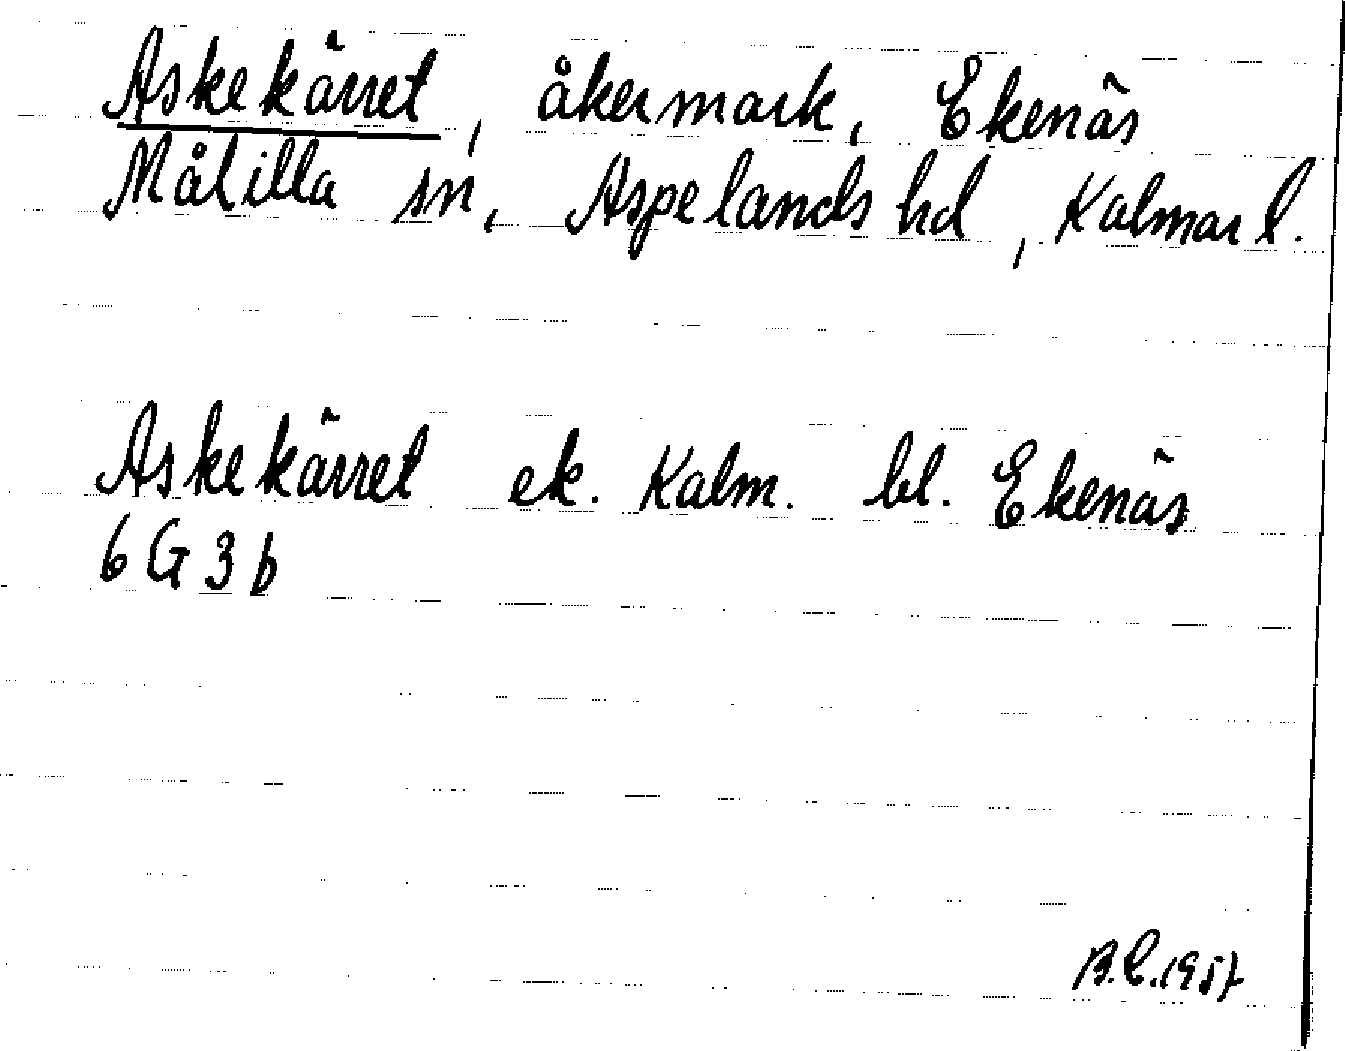 Askekärret, åkermark, Ekenäs
Målilla sn, Aspelands hd, Kalmar l.
Askekärret ek. Kalm. bl. Ekenäs
6G3b
B.E.1957